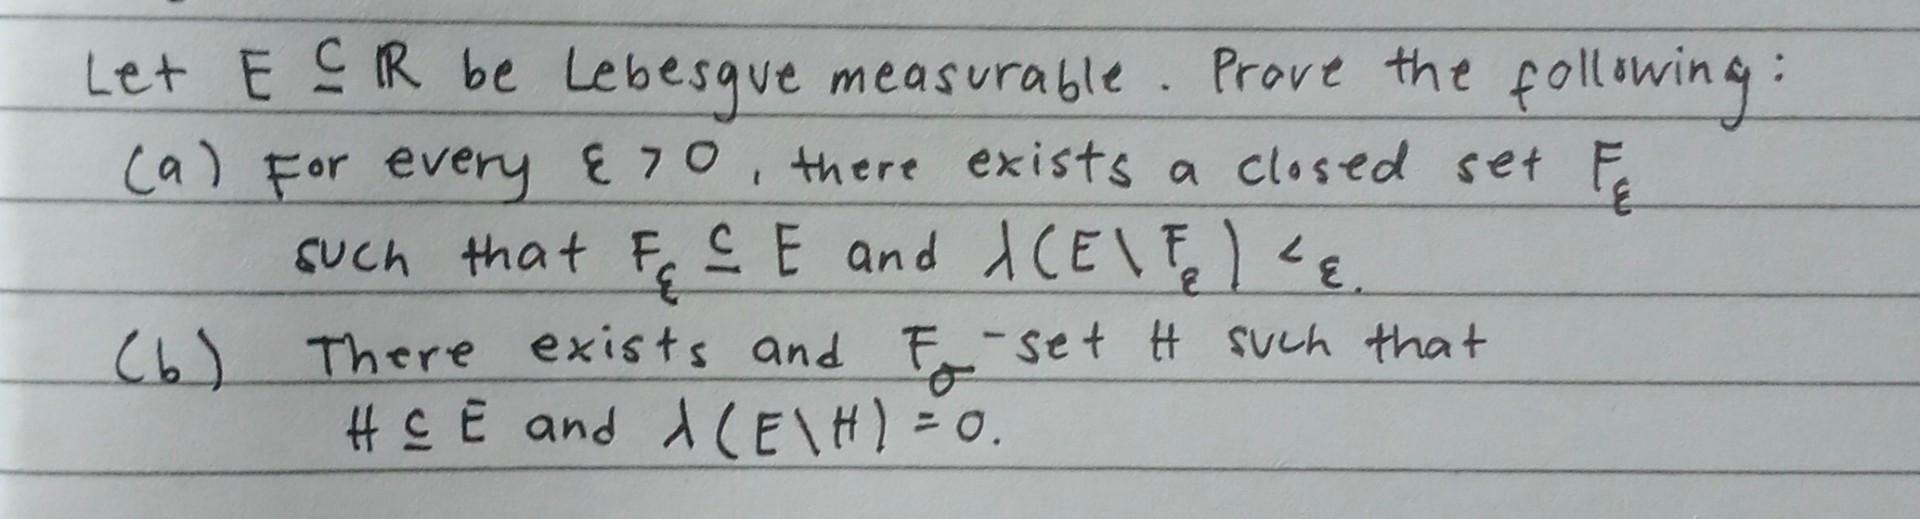 Let E ⊆ ℝ be Lebesgue measurable. Prove the following:
(a) For every ε > 0, there exists a closed set F_ε
such that F_ε ⊆ E and λ(E\F_ε) < ε.
(b) There exists and F_σ-set H such that
H ⊆ E and λ(E\H) = 0.